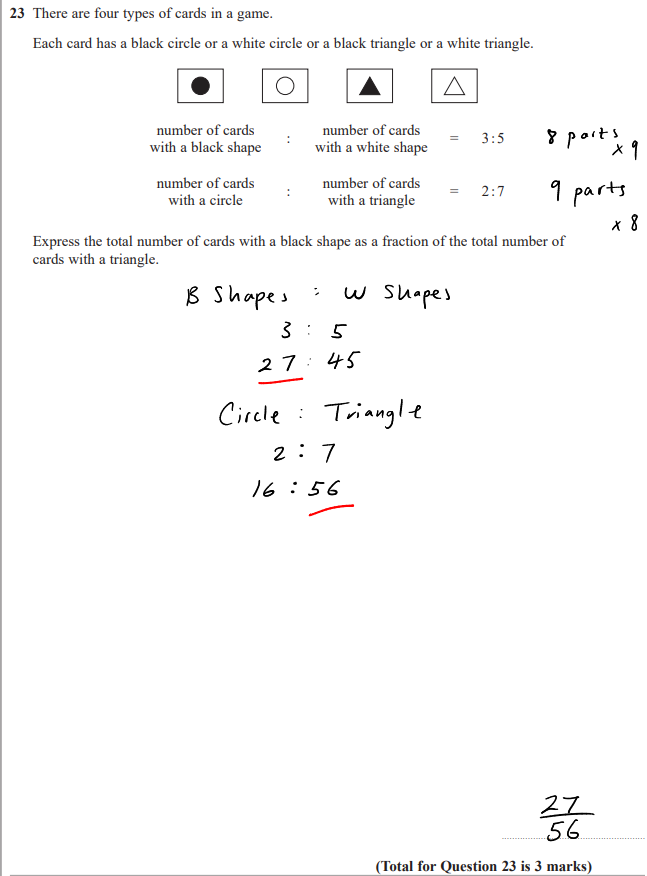 23 There are four types of cards in a game.
Each card has a black circle or a white circle or a black triangle or a white triangle.
number of cards with a black shape : number of cards with a white shape = 3:5 8 parts × 9
number of cards with a circle : number of cards with a triangle = 2:7 9 parts × 8
Express the total number of cards with a black shape as a fraction of the total number of
cards with a triangle.
B Shapes : W Shapes
3 : 5
27 : 45
Circle : Triangle
2 : 7
16 : 56
27
56
(Total for Question 23 is 3 marks)